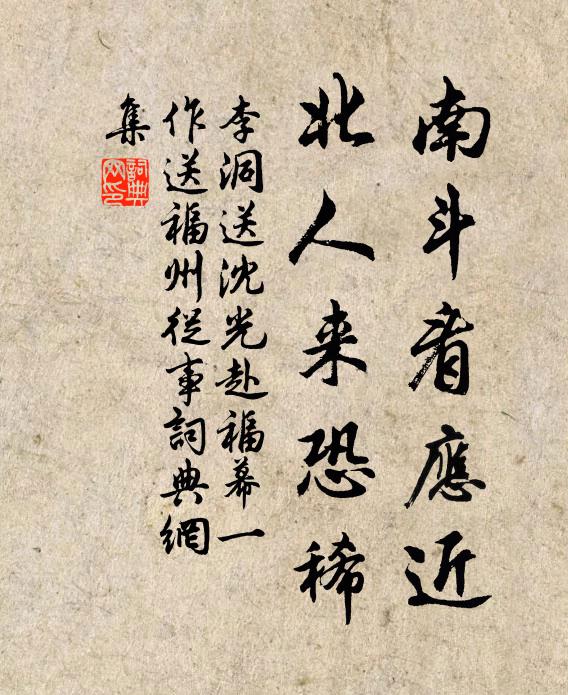 南斗看應近
北人来恐稀
李洞送沈光赴福幕一
作送福州從事詞典網
集
詞典網印